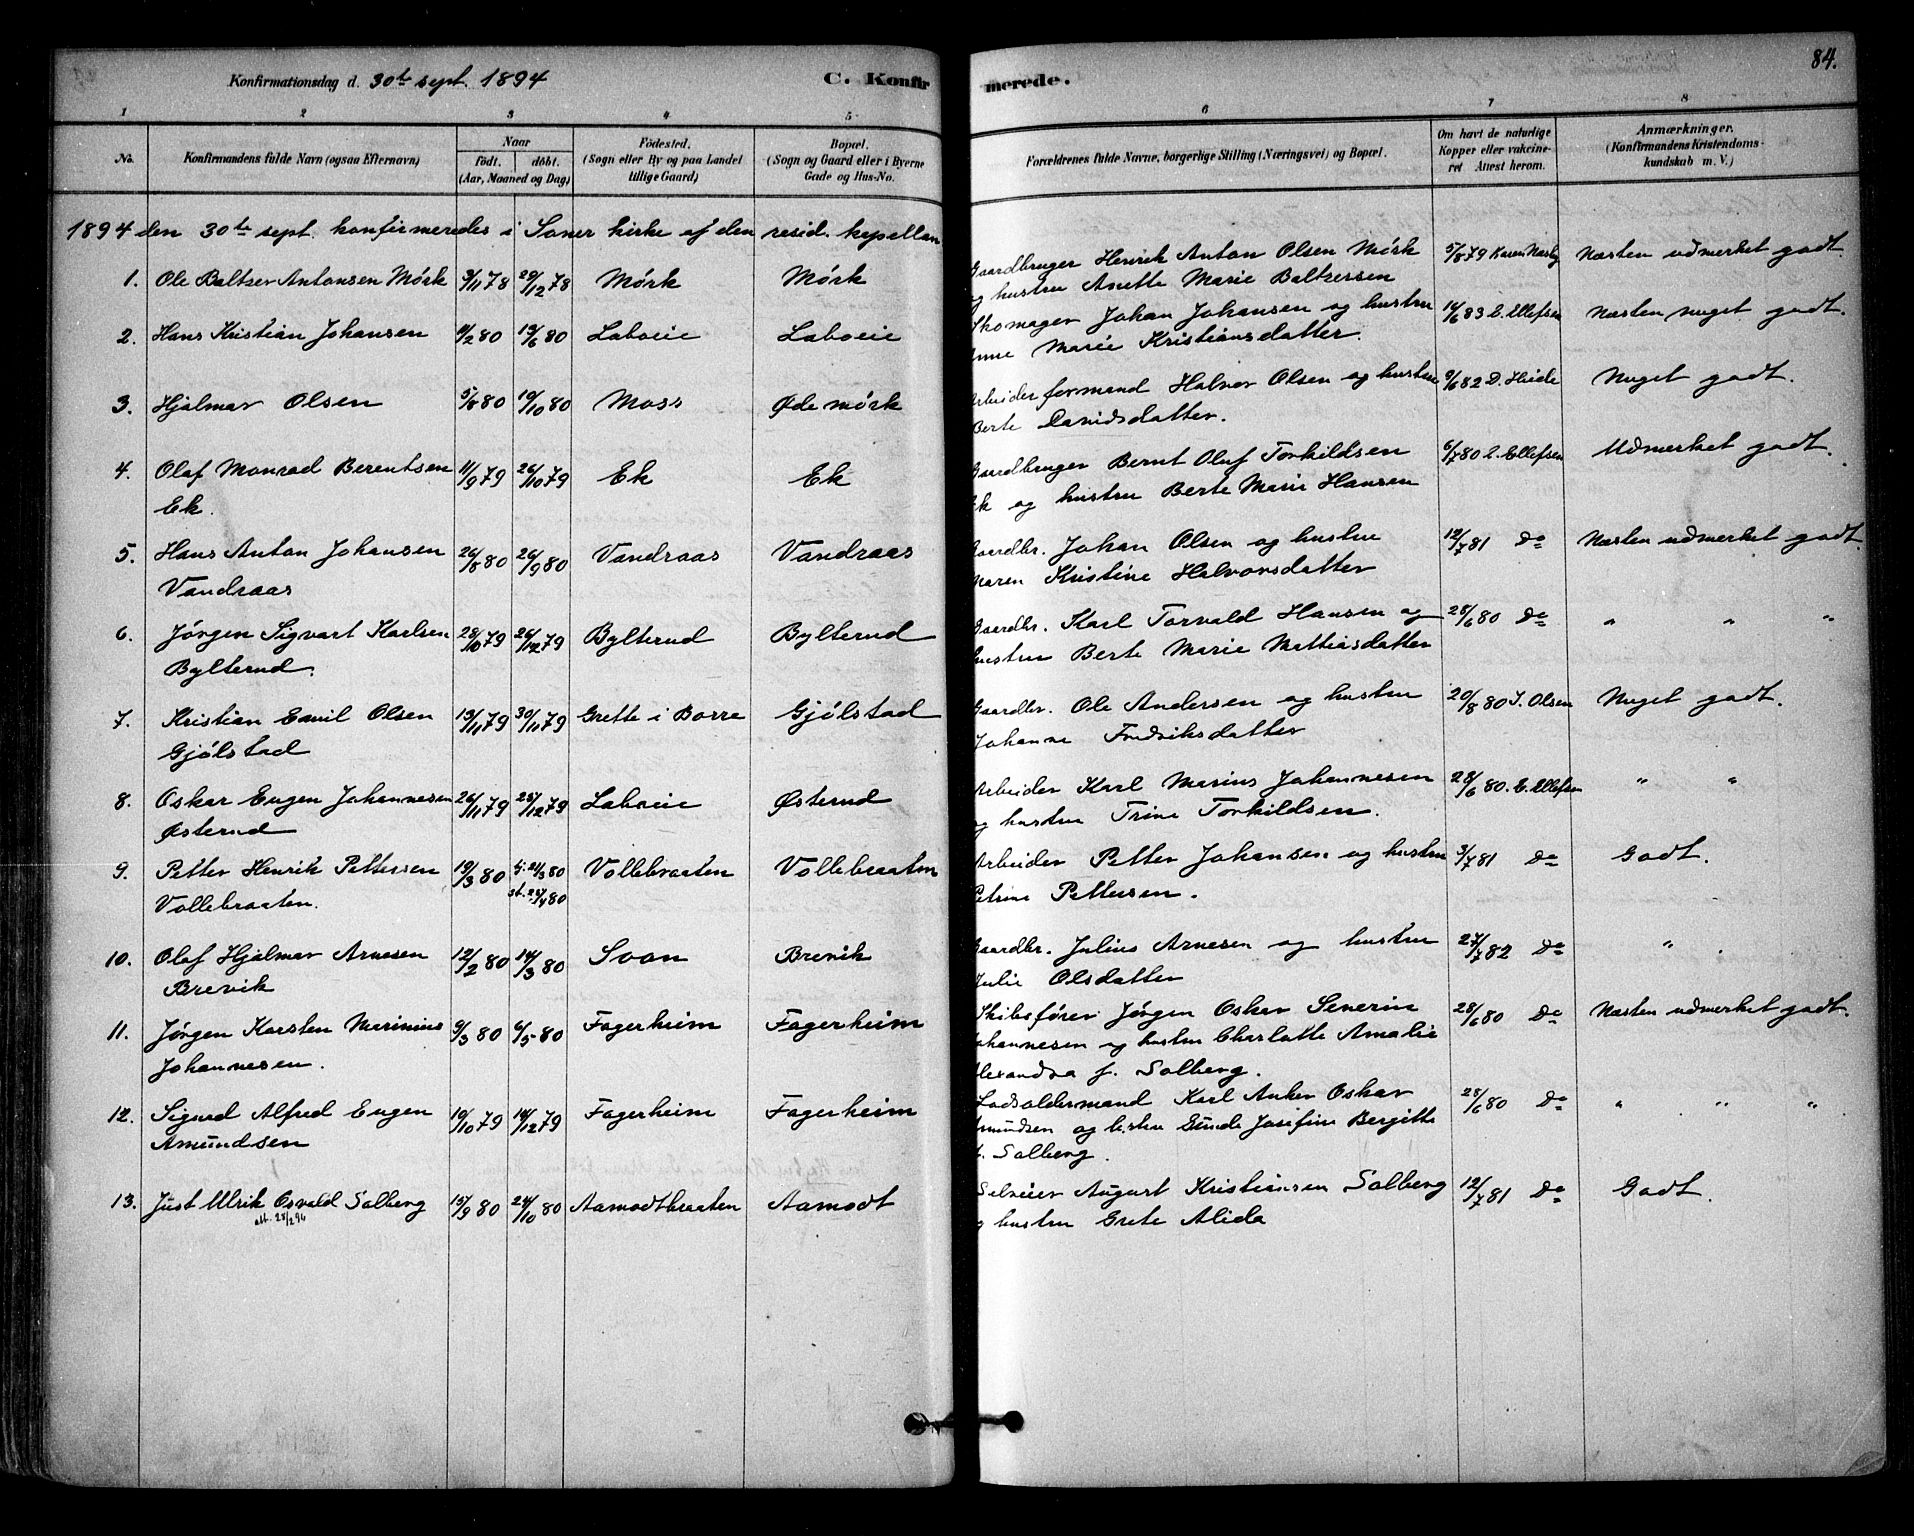 Konfirmationsdag d. 30te sept. 1894 C. Konfir merede. 84.
1 2 3 4 5 6 7 8
No. Konfirmandens fulde Navn (ogsaa Efternavn) Naar födt. döbt. (Aar, Maaned og Dag) Födested. (Sogn eller By og paa Landet tillige Gaard) Bopæl. (Sogn og Gaard eller i Byerne Gade og Hus-No. Forældrenes fulde Navne, borgerlige Stilling (Næringsvei) og Bopæl. Om havt de naturlige Kopper eller vakcineret Attest herom. Anmærkninger. (Konfirmandens Kristendomskundskab m. V.)
1894 den 30te sept. konfirmeredes i Soner kirke af den resid. kapellan
1. Ole Baltzer Antonsen Mörk 3/11 78 29/12 78 Mörk Mörk Gaardbruger Henrik Anton Olsen Mörk 5/8 79 Karen Næsby Næsten udmerket godt.
og hustru Anette Marie Baltzersen
2. Hans Kristian Johansen 11/2 80 13/6 80 Laboeie Laboeie Skomager Johan Johansen og hustru 14/6 83 E. Ellefsen Næsten meget godt.
Anne Marie Kristiansdatter.
3. Hjalmar Olsen 5/8 80 19/10 80 Moss Øde mörk Arbeiderformand Halvor Olsen og hustru 9/6 82 D. Heide Meget godt.
Berte Davidsdatter.
4. Olaf Monrad Berentsen 11/9 79 26/10 79 Ek Ek Gaardbruger Bernt Oluf Torkildsen 6/7 80 E. Ellefsen Udmerket godt.
Ek. Ek og hustru Berte Marie Hansen
5. Hans Anton Johansen 26/8 80 26/9 80 Vandraas Vandraas Gaardbr. Johan Olsen og hustru 12/7 81 Do Næsten udmerket godt.
Vandraas Maren Kristine Halvorsdatter
6. Jörgen Sigvart Karlsen 28/10 79 26/12 79 Bylterud Bylterud Gaardbr. Karl Torvald Hansen og 28/6 80 Do " " "
Bylterud. hustru Berte Marie Mathiasdatter
7. Kristian Emil Olsen 13/11 79 30/11 79 Grette i Borre Gjölstad Gaardbr. Ole Andersen og hustru 20/8 80 J. Olsen Meget godt.
Gjölstad Johanne Fredriksdatter
8. Oskar Eugen Johannesen 26/11 79 25/12 79 Laboeie Østerud Arbeider Karl Marius Johannesen 28/6 80. E. Ellefsen " "
Østerud og hustru Trine Torkildsen.
9. Petter Henrik Pettersen 19/3 80 hj. 21/3 80 Vollebraaten Vollebraaten Arbeider Petter Johansen og hustru 3/7 81 Do Godt.
Vollebraaten. st. 25/4 80 Petrine Pettersen.
10. Olaf Hjalmar Arnesen 12/2 80 14/3 80 Soon Brevik Gaardbr. Julius Arnesen og hustru 27/7 82 Do " .
Brevik Julie Olsdatter
11. Jörgen Karsten Marinius 9/3 80 6/5 80 Fagerheim Fagerheim Skibsförer Jörgen Oskar Severin 28/6 80 Do Næsten udmerket godt.
Johannesen. Johannesen og hustru Charlotte Amalie
Alexandra f. Solberg.
12. Sigurd Alfred Eugen 19/10 79 14/12 79 Fagerheim Fagerheim Lodsoldermand Karl Anker Oskar 28/6 80 Do " " "
Amundsen Amundsen og hustru Gunde Josefine Bergitte
f. Solberg.
13. Just Ulrik Osvald Solberg 15/9 80 24/10 80 Aamodtbraaten Aamodt Selveier August Kristiansen Solberg 12/7 81 Do Godt.
att. 28/2 96 og hustru Grete Alida